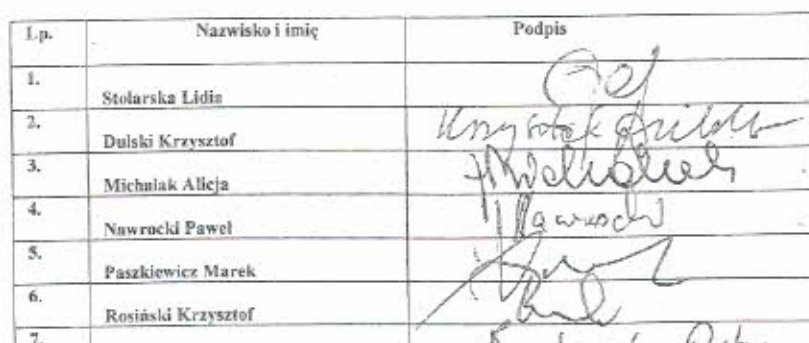 L.p. Nazwisko i imię Podpis
1. Stolarska Lidia
2. Dulski Krzysztof Krzysztof Dulski
3. Michalak Alicja AMichalak
4. Nawrocki Paweł Nawrocki
5. Paszkiewicz Marek
6. Rosiński Krzysztof
7.